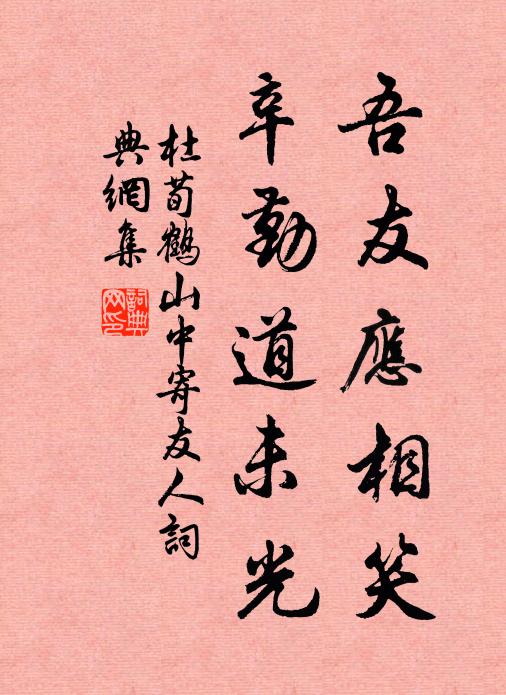 吾友應相笑
辛勤道未光
杜荀鶴山中寄友人詞
典網集
詞典
网印